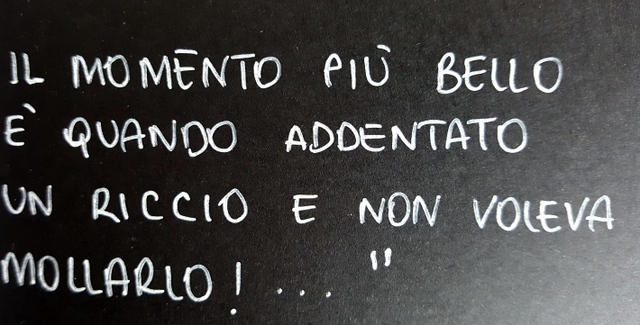 IL MOMENTO PIÙ BELLO
È QUANDO ADDENTATO
UN RICCIO E NON VOLEVA
MOLLARLO! ... "